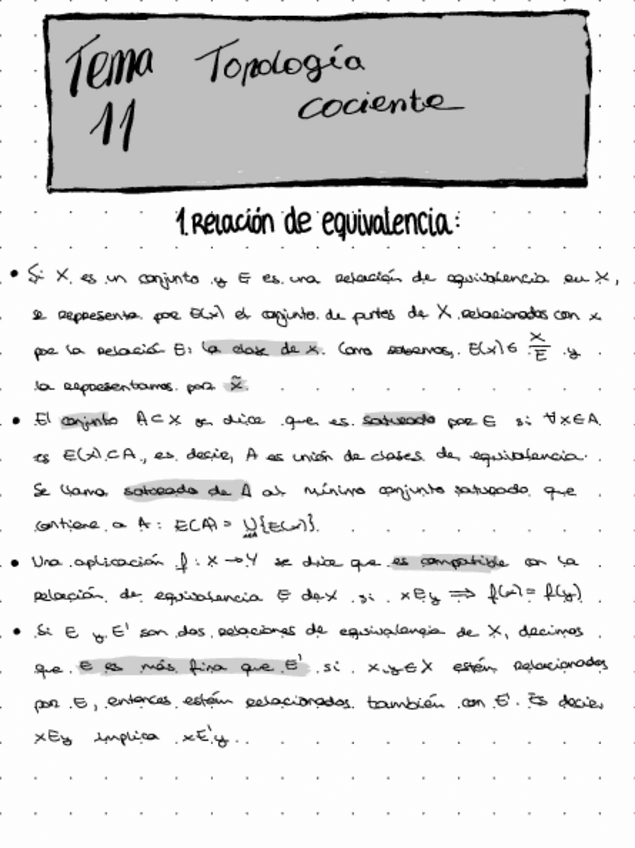 Tema 11 Topología
cociente
1. Relación de equivalencia:
• Si X es un conjunto y E es una relación de equivalencia en X,
se representa por E(x) el conjunto de puntos de X relacionados con x
por la relación E: la clase de x. Como sabemos, E(x) ∈ X/E y
la representamos por x̃.
• El conjunto A⊂X se dice que es saturado por E si ∀x∈A
es E(x)⊂A, es decir, A es unión de clases de equivalencia.
Se llama saturado de A al mínimo conjunto saturado que
contiene a A: E(A) = ∪{E(x)}.
• Una aplicación f: X→Y se dice que es compatible con la
relación de equivalencia E de X si xEy ⟹ f(x) = f(y).
• Si E y E' son dos relaciones de equivalencia de X, decimos
que E es más fina que E' si x,y∈X están relacionados
por E, entonces están relacionados también con E'. Es decir,
xEy implica xE'y.